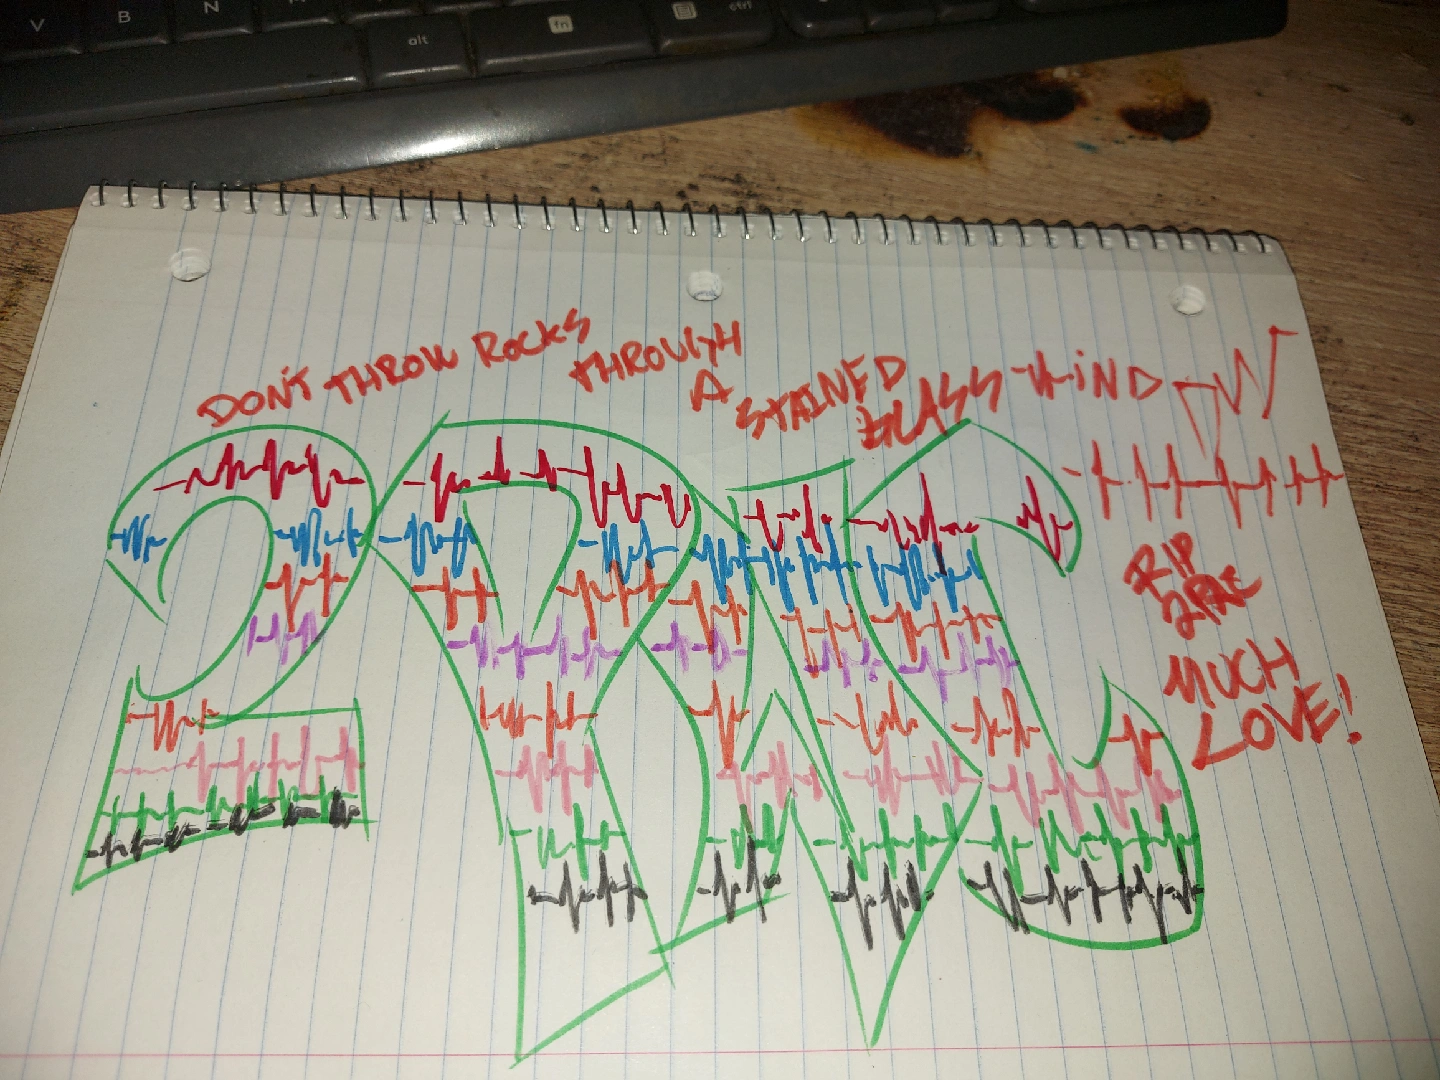 V B N M
alt fn ctrl
DON'T THROW ROCKS THROUGH A STAINED GLASS WINDOW
RIP
MUCH
LOVE!